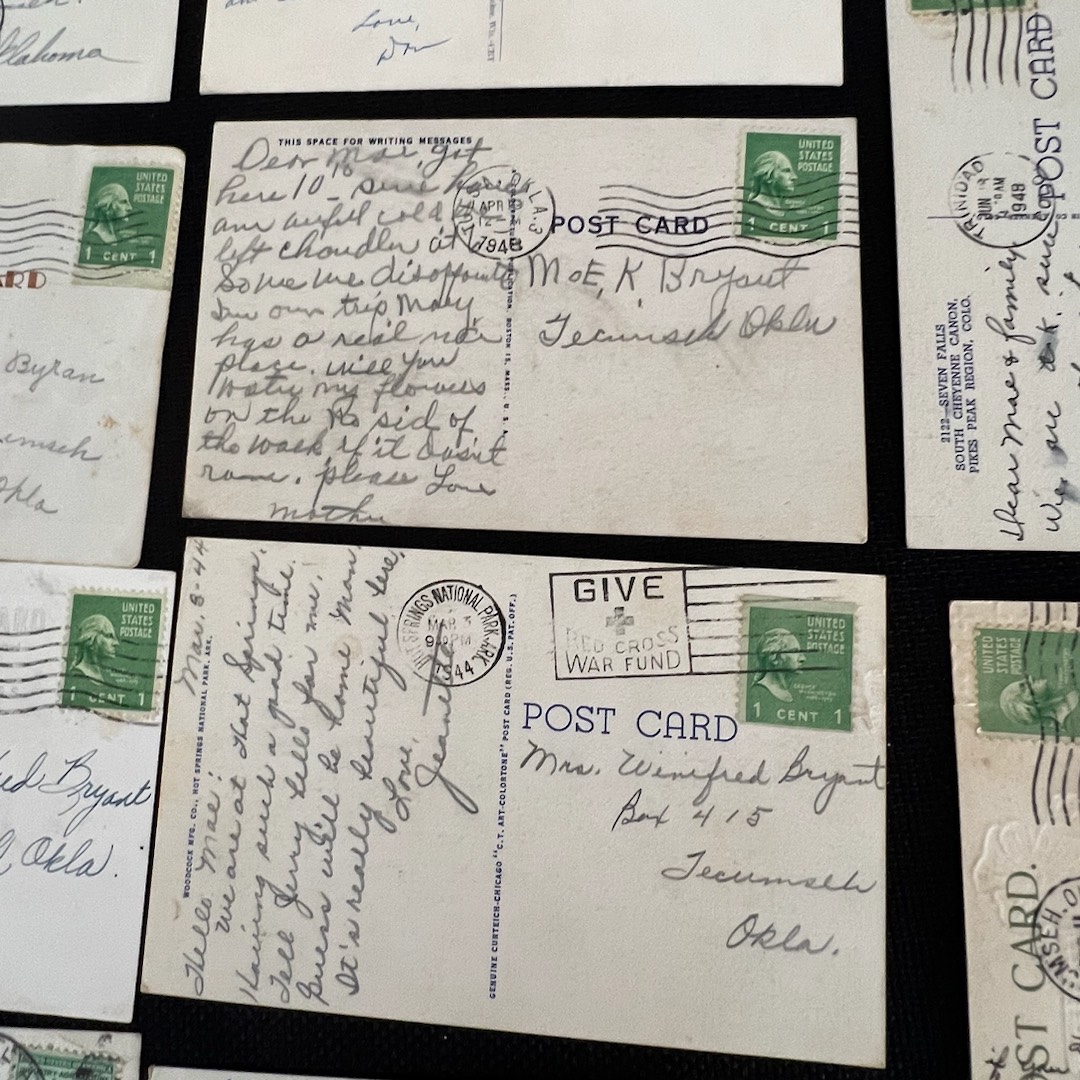 Oklahoma
Love,
Don
UNITED
STATES
POSTAGE
1 CENT 1
Byran
Okla
THIS SPACE FOR WRITING MESSAGES
Dear Mae, got
here 10
an awful cold
left Chandler at
Some me disappointed
our trip Mary
has a real nice
place. will you
my flowers
on the sid of
the walk if it dosn't
rane. please Love
Mother
APR
1948
POST CARD
UNITED
STATES
POSTAGE
1 CENT 1
Mo E, K, Bryant
Tecumseh Okla
POST CARD
TRINIDAD
JUN
AM
1949
2122—SEVEN FALLS
SOUTH CHEYENNE CANON,
PIKES PEAK REGION, COLO.
Dear Mae & family
We are o.k.
UNITED
STATES
POSTAGE
1 CENT 1
Bryant
Okla.
WOODCOCK MFG. CO., HOT SPRINGS NATIONAL PARK, ARK.
Mar. 3-44
Hello Mae:
We are at Hot Springs.
Having such a good time.
Tell Jerry hello for me.
Guess we'll be home Mon.
It's really beautiful here.
Love,
Jeanette
HOT SPRINGS NATIONAL PARK, ARK
MAR 3
PM
1944
GENUINE CURTEICH-CHICAGO "C.T. ART-COLORTONE" POST CARD (REG. U.S. PAT. OFF.)
GIVE
RED CROSS
WAR FUND
UNITED
STATES
POSTAGE
1 CENT 1
POST CARD
Mrs. Winifred Bryant
Box 415
Tecumseh
Okla.
UNITED
STATES
POSTAGE
CARD.